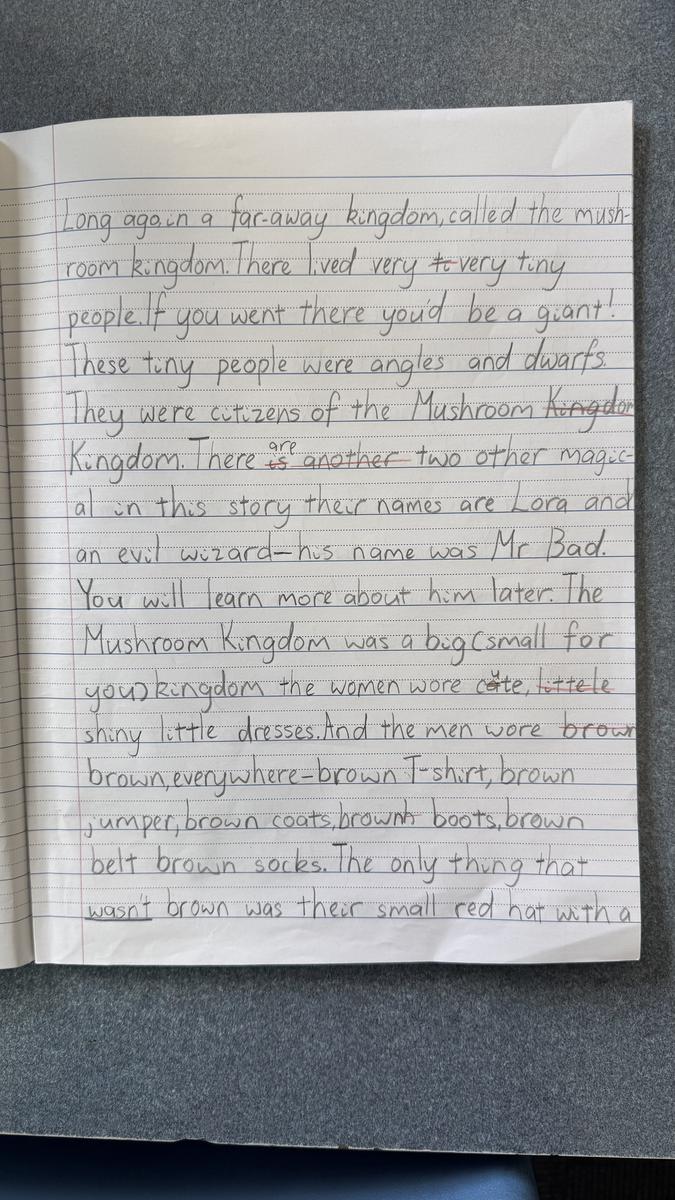 Long ago,in a far-away kingdom, called the mush-
room kingdom. There lived very ti very tiny
people. If you went there you'd be a giant!
These tiny people were angles and dwarfs.
They were citizens of the Mushroom Kingdom
Kingdom. There is another are two other magic-
al in this story their names are Lora and
an evil wizard—his name was Mr Bad.
You will learn more about him later. The
Mushroom Kingdom was a big (small for
you) kingdom the women wore cute, littele
shiny little dresses. And the men wore brown
brown, everywhere—brown T-shirt, brown
jumper, brown coats, brown boots, brown
belt brown socks. The only thing that
wasn't brown was their small red hat with a